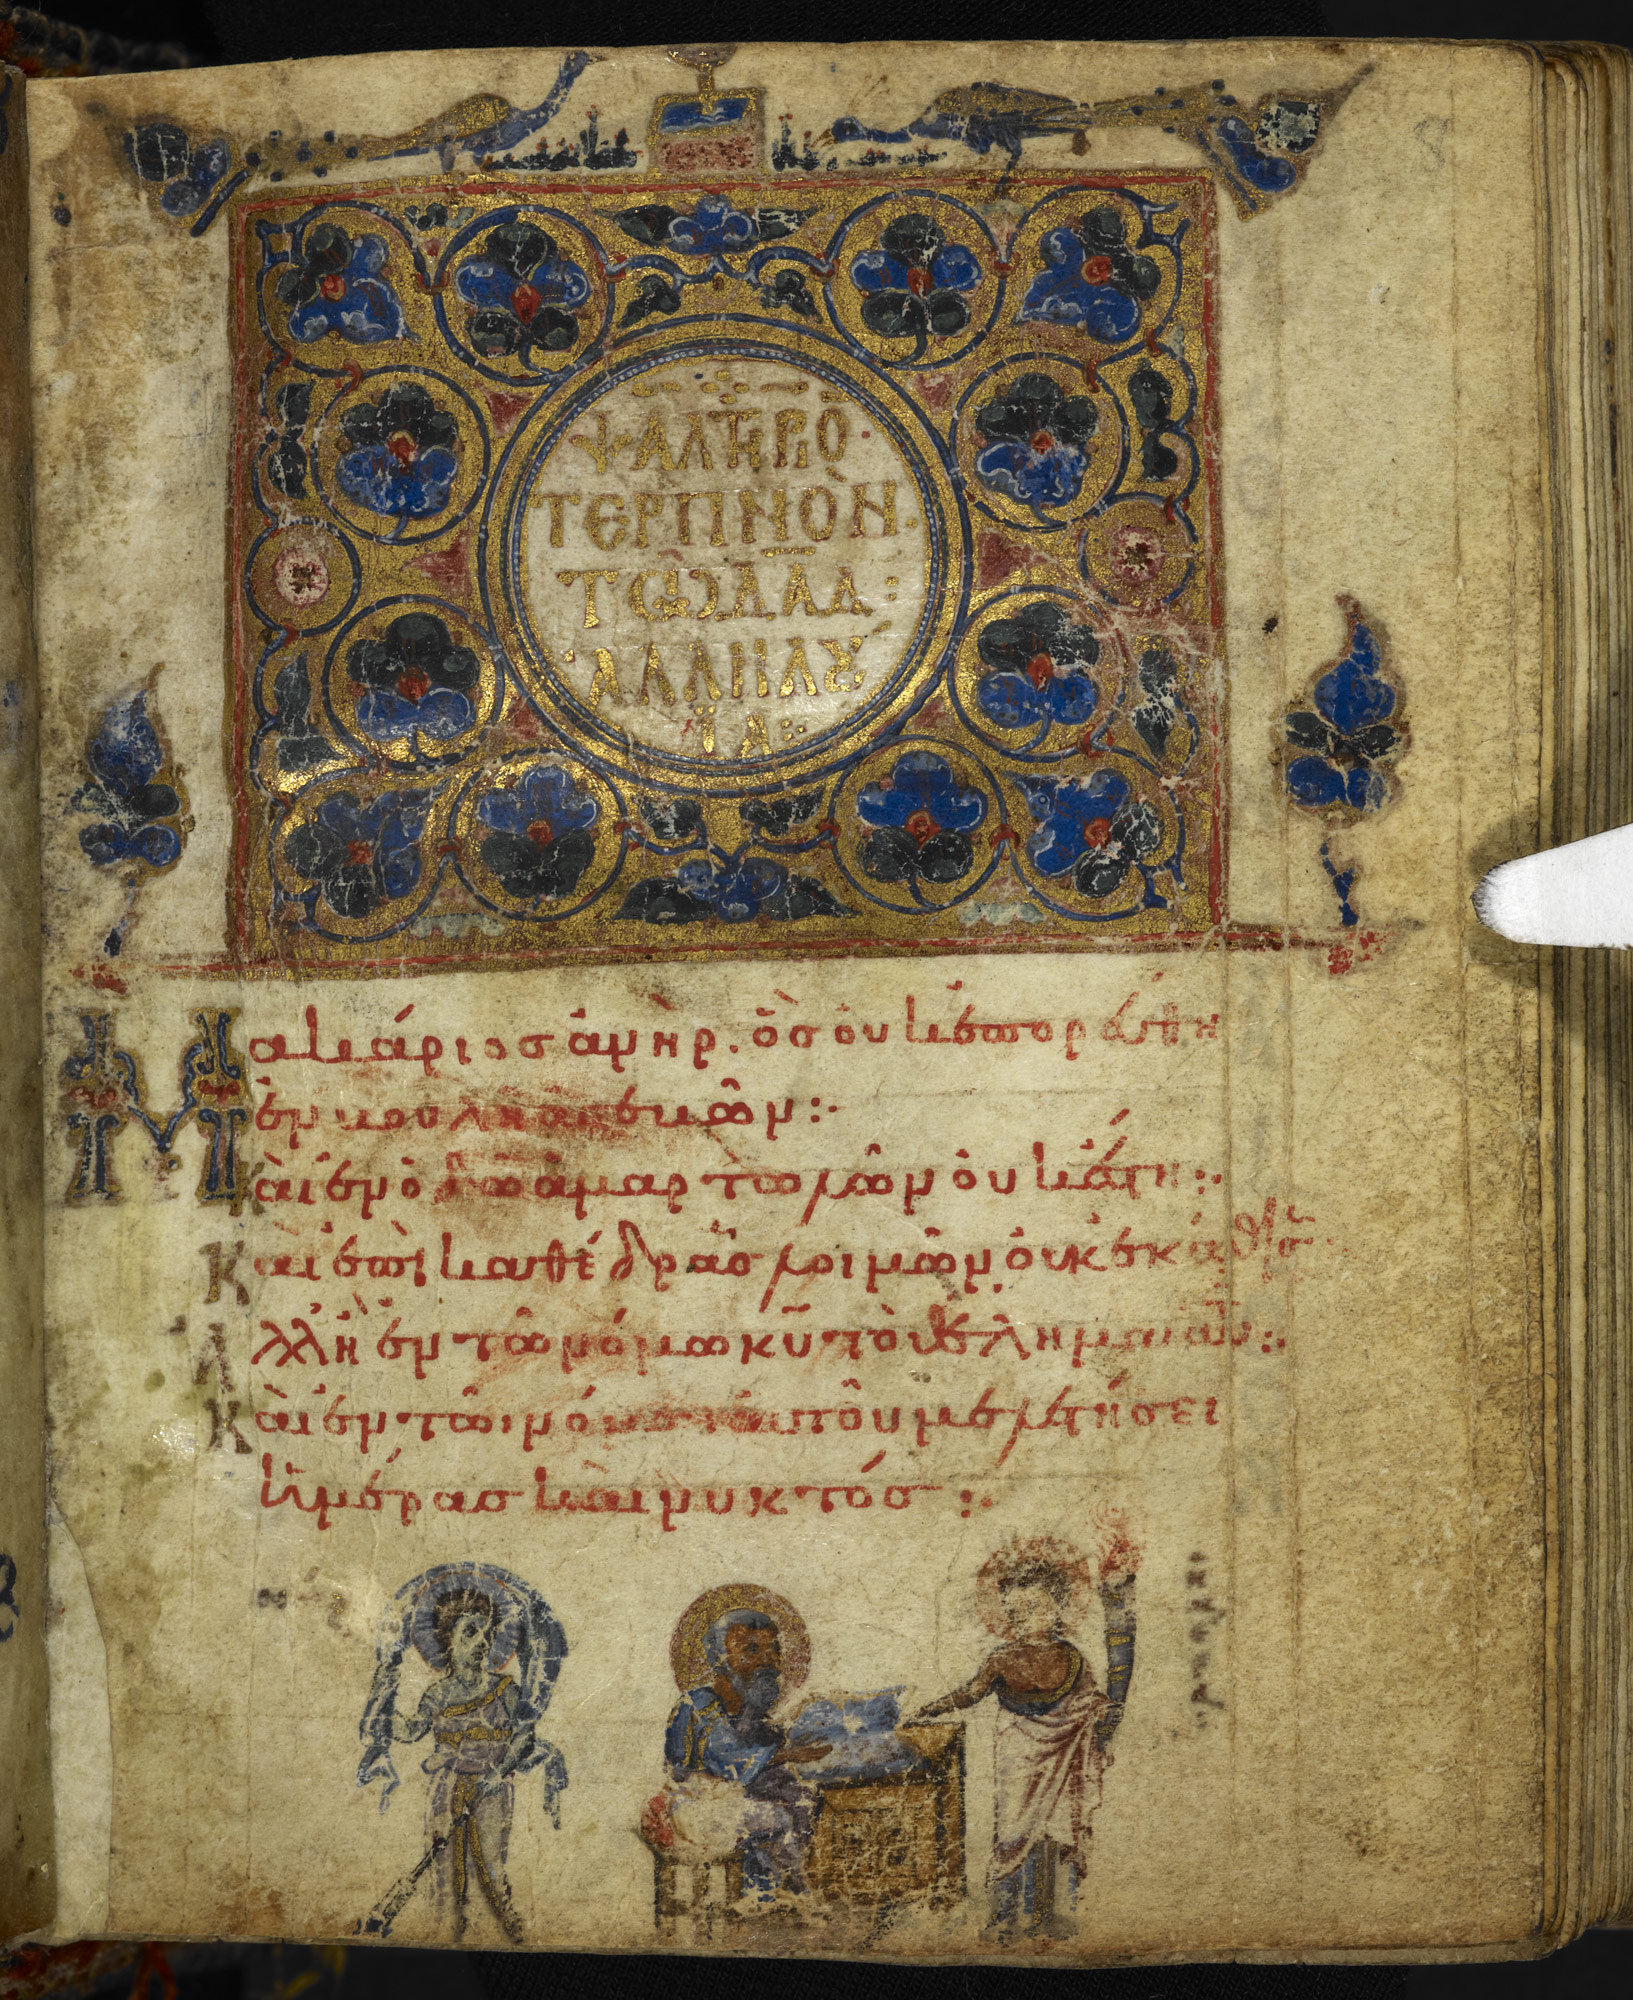 ΨΑΛΤΗΡΙΟ
ΤΕΡΠΝΟΝ
ΤΩ ΔΑΔ:
ἈΛΛΗΛȢ́
ΪΑ:
Μακάριος ἀνὴρ. ὃς οὐκ ἐπορεύθη
ἐν βουλῆ ἀσεβῶν:·
Κὰι ἐν ὁδῶ ἁμαρτωλῶν ὀυκ ἔστη:·
Καὶ ἐπὶ καθέδρα λοιμῶν ὀυκ ἐκάθισ
Ἀλλ ἢ ἐν τῶ νόμω κ̅υ̅ τὸ θέλημα αυτου:·
Κὰι ἐν τῶι νόμω ἀυτοῦ μελετήσει
ἡμέρας κὰι νυκτός:·
8
ἡ νὺξ
ἡ ἡμέρα